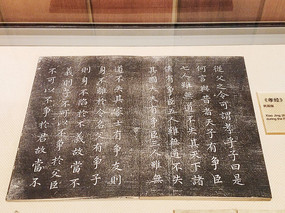 從父之令可謂孝乎子曰是
何言與昔者天子有爭臣
七人雖無道不失其天下諸
侯有爭臣五人雖無道不失
其國大夫有爭臣三人雖無
道不失其家士有爭友則
身不離於令名父有爭子
則身不陷於不義故當不
義則子不可以不爭於父臣
不可以不爭於君故當不
《孝經》
Xiao Jing
during the